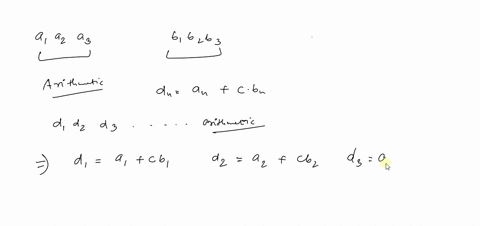 a₁ a₂ a₃ b₁ b₂ b₃
Arithmetic dₙ = aₙ + c·bₙ
d₁ d₂ d₃ ..... arithmetic
⇒ d₁ = a₁ + cb₁ d₂ = a₂ + cb₂ d₃ = a